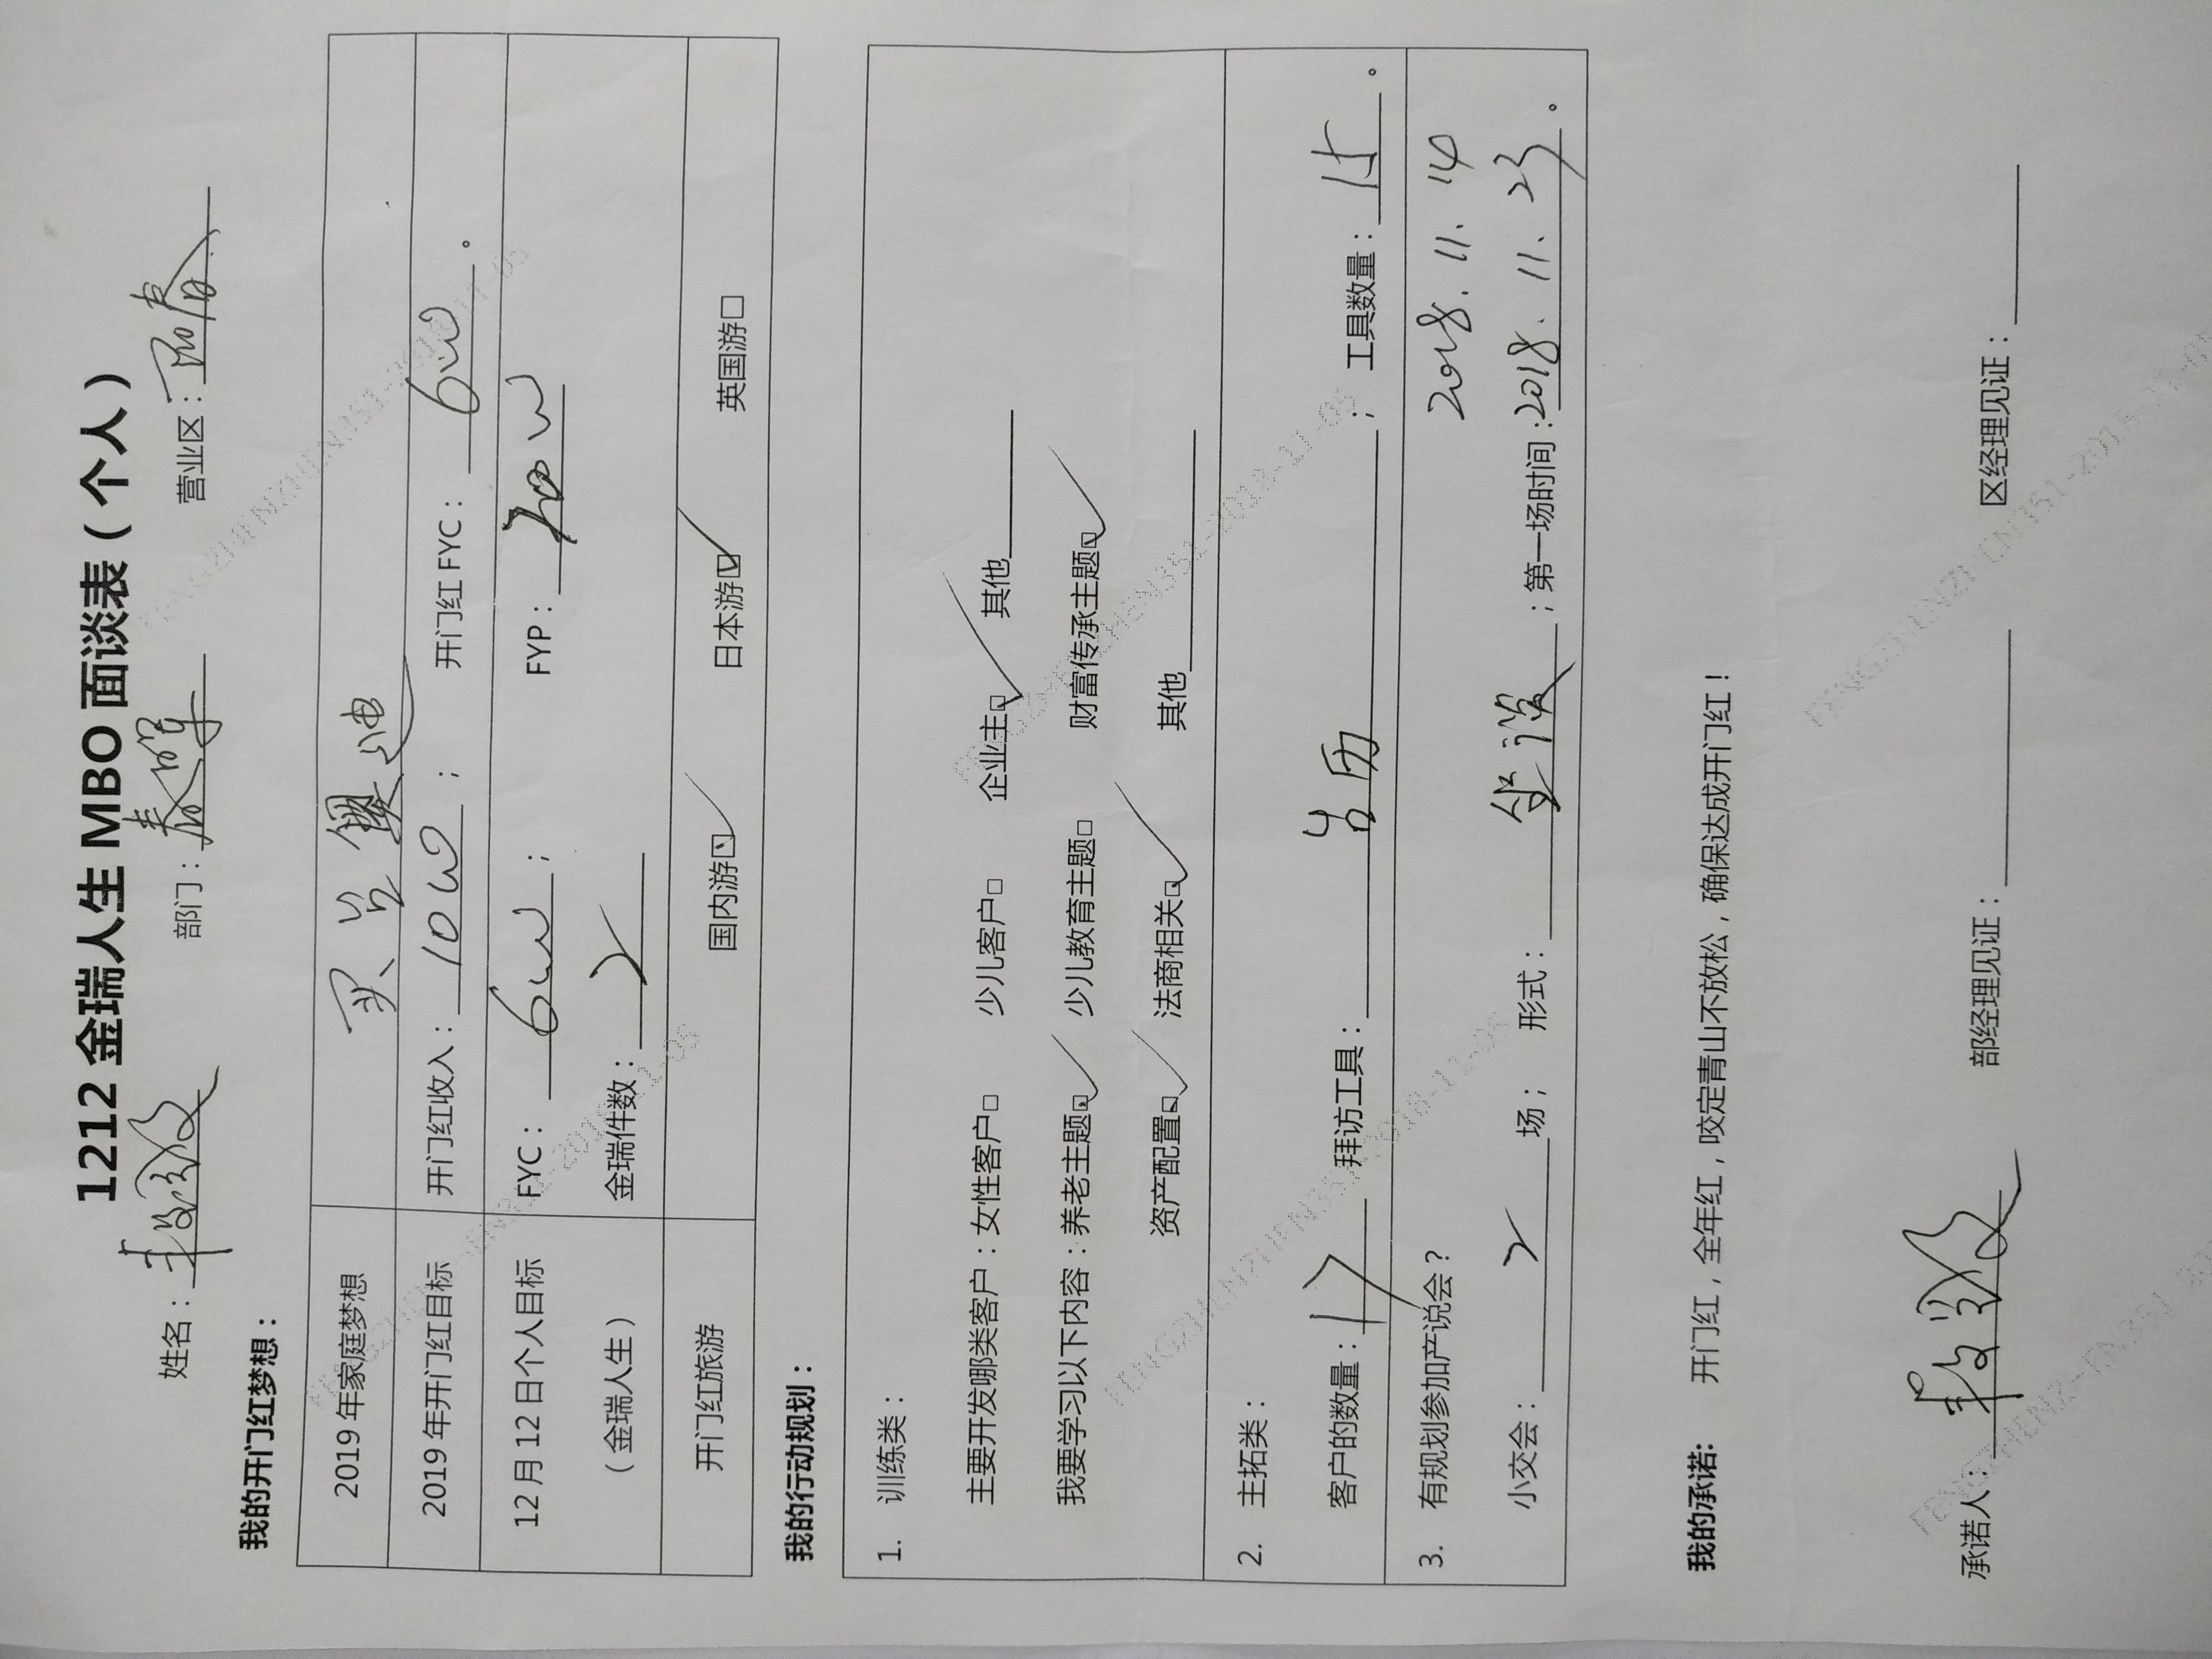 1212 金瑞人生 MBO 面谈表（个人）
姓名： 部门：春晖 营业区：
我的开门红梦想：
2019 年家庭梦想 买台奥迪
2019 年开门红目标 开门红收入：10W； 开门红 FYC：6W。
12 月 12 日个人目标 FYC：6W； FYP：20W
（金瑞人生） 金瑞件数：2
开门红旅游 国内游☑ 日本游☑ 英国游□
我的行动规划：
1. 训练类：
主要开发哪类客户：女性客户□ 少儿客户□ 企业主☑ 其他
我要学习以下内容：养老主题☑ 少儿教育主题□ 财富传承主题☑
资产配置☑ 法商相关☑ 其他
2. 主拓类：
客户的数量：17 拜访工具：台历； 工具数量：15。
3. 有规划参加产说会？ 2018.11.14
小交会：2场； 形式：座谈；第一场时间：2018.11.23。
我的承诺： 开门红，全年红，咬定青山不放松，确保达成开门红！
承诺人： 部经理见证： 区经理见证：